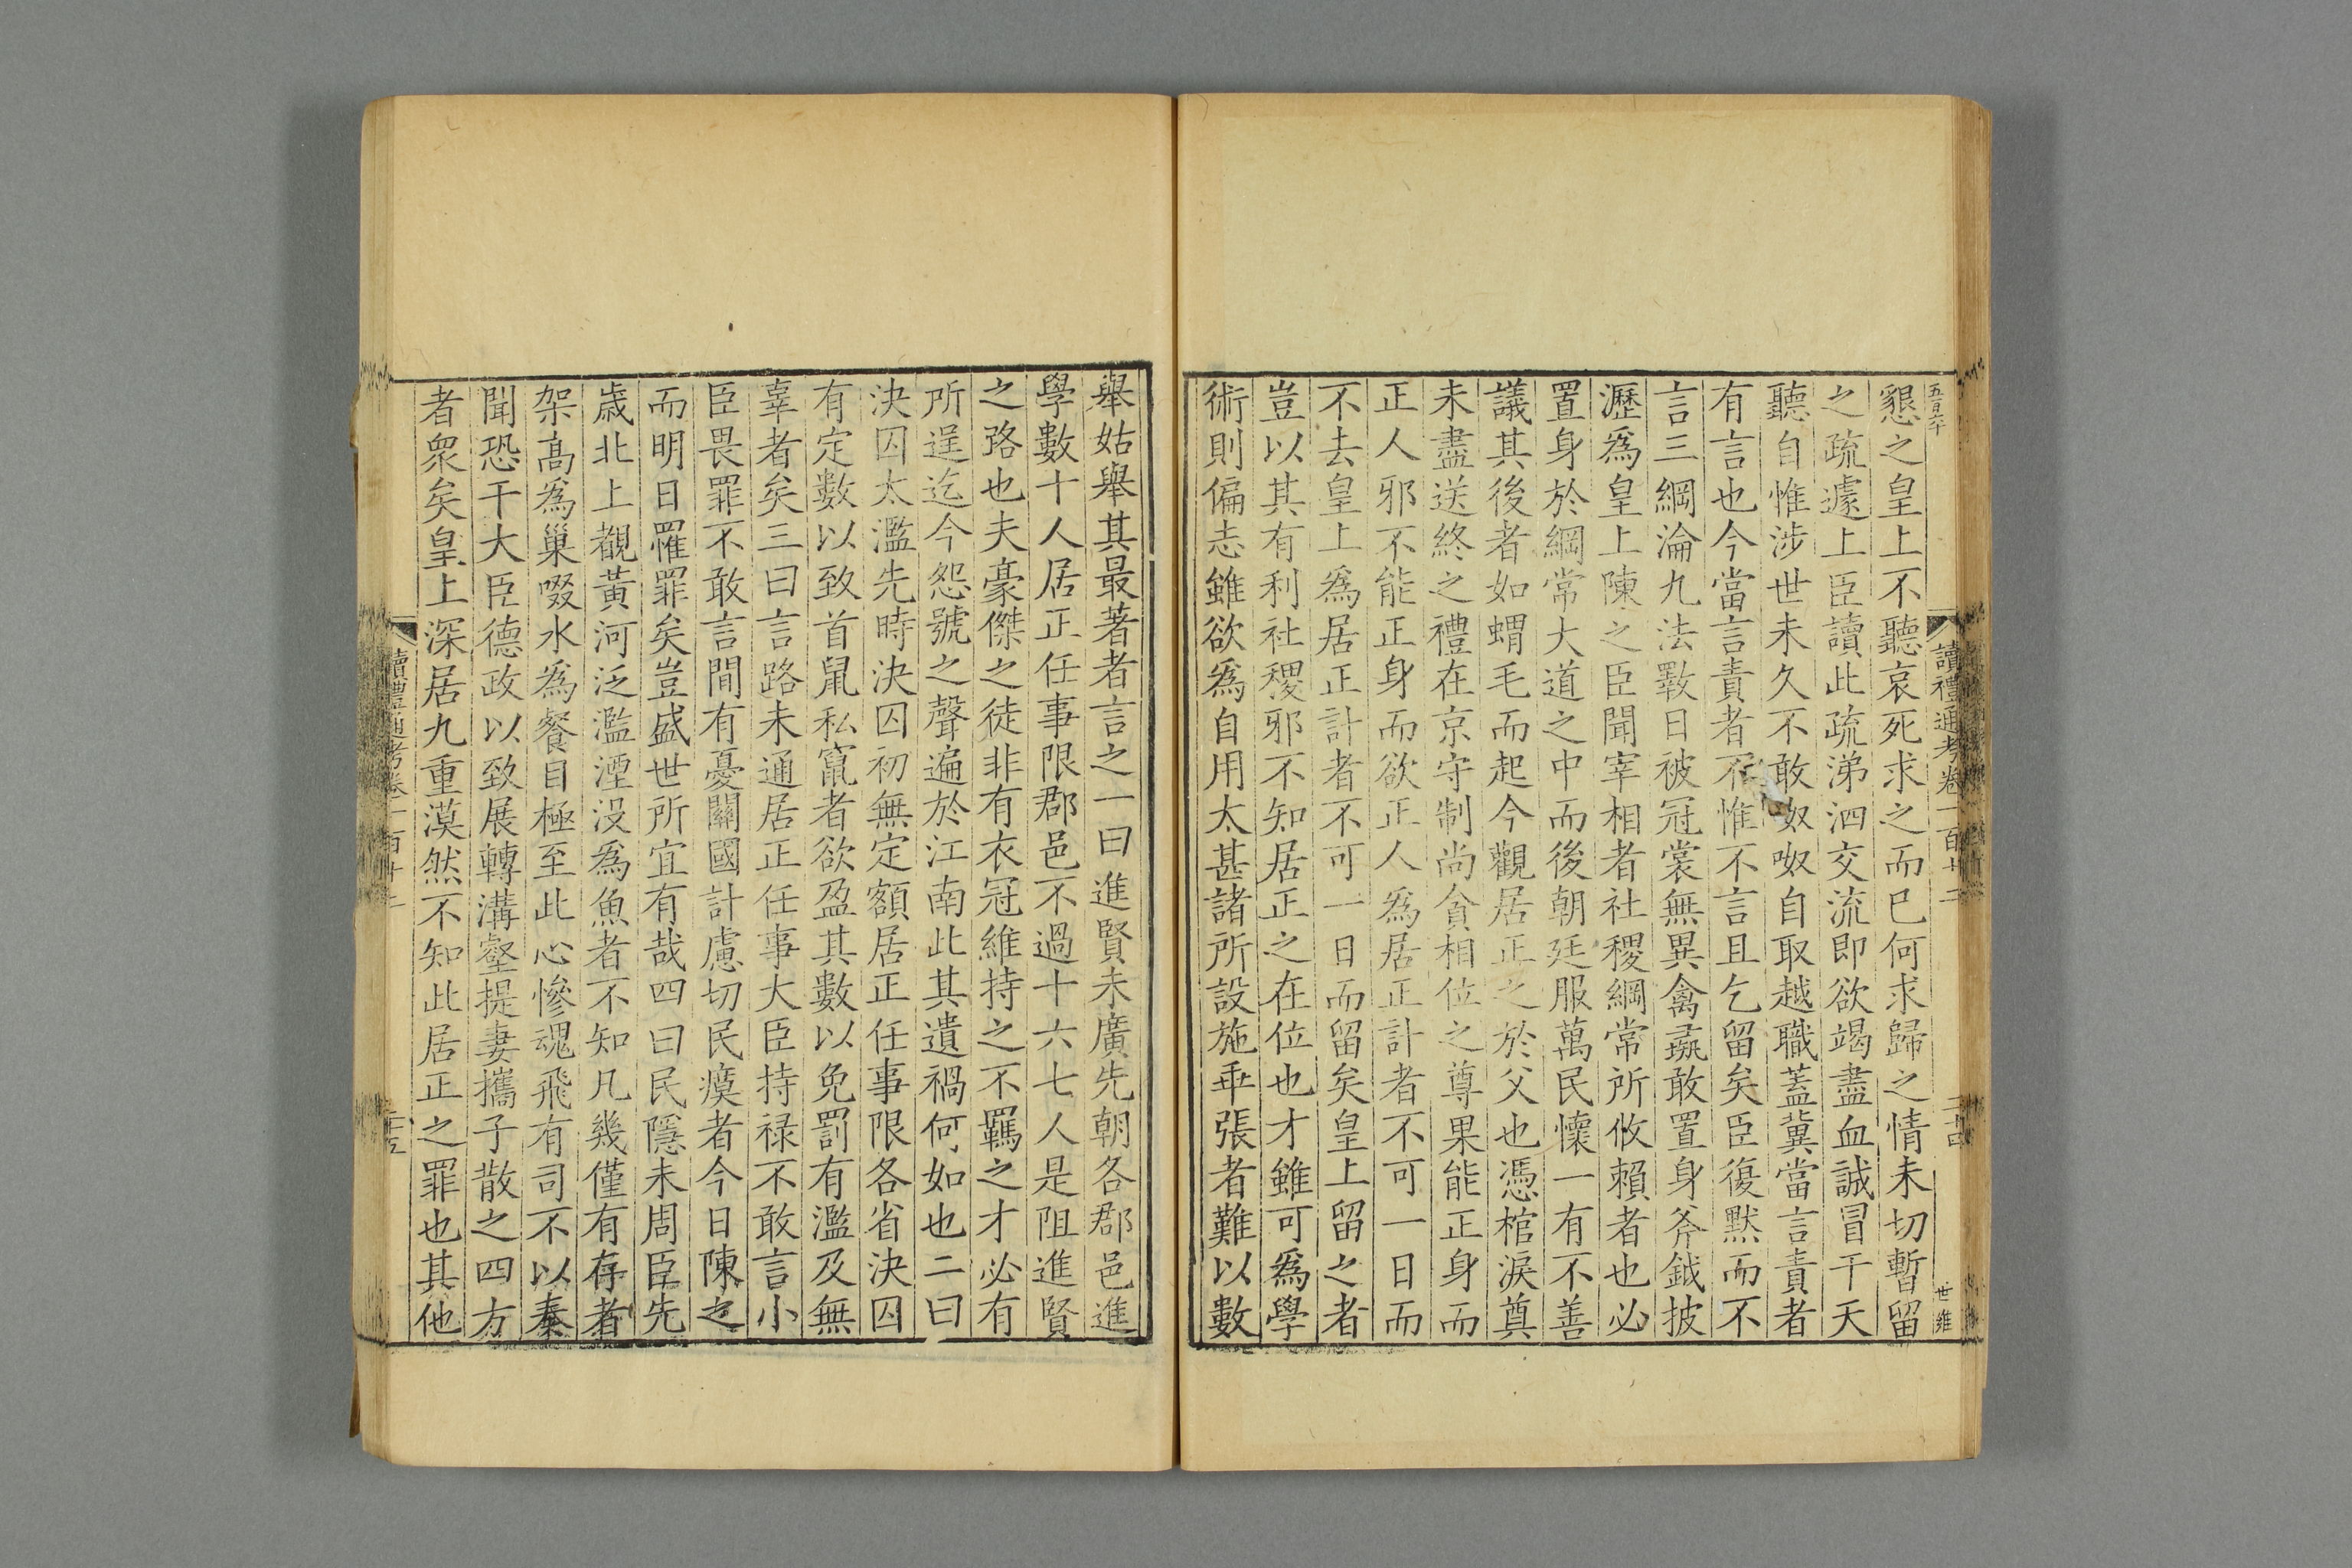 五百六十
讀禮通考卷一百十二
二十四
世維
懇之皇上不聽哀死求之而已何求歸之情未切暫留
之疏遽上臣讀此疏涕泗交流即欲竭盡血誠冒干天
聽自惟涉世未久不敢呶呶自取越職蓋冀當言責者
有言也今當言責者不惟不言且乞留矣臣復默而不
言三綱淪九法斁日被冠裳無異禽彘敢置身斧鉞披
瀝爲皇上陳之臣聞宰相者社稷綱常所攸賴者也必
置身於綱常大道之中而後朝廷服萬民懷一有不善
議其後者如蝟毛而起今觀居正之於父也憑棺淚奠
未盡送終之禮在京守制尚貪相位之尊果能正身而
正人邪不能正身而欲正人爲居正計者不可一日而
不去皇上爲居正計者不可一日而留矣皇上留之者
豈以其有利社稷邪不知居正之在位也才雖可爲學
術則偏志雖欲爲自用太甚諸所設施乖張者難以數
舉姑舉其最著者言之一曰進賢未廣先朝各郡邑進
學數十人居正任事限郡邑不過十六七人是阻進賢
之路也夫豪傑之徒非有衣冠維持之不羈之才必有
所逞迄今怨號之聲遍於江南此其遺禍何如也二曰
決囚太濫先時決囚初無定額居正任事限各省決囚
有定數以致首鼠私竄者欲盈其數以免罰有濫及無
辜者矣三曰言路未通居正任事大臣持祿不敢言小
臣畏罪不敢言間有憂關國計慮切民瘼者今日陳之
而明日罹罪矣豈盛世所宜有哉四曰民隱未周臣先
歲北上觀黃河泛濫湮沒爲魚者不知凡幾僅有存者
架高爲巢啜水爲餐目極至此心慘魂飛有司不以奏
聞恐干大臣德政以致展轉溝壑提妻攜子散之四方
者衆矣皇上深居九重漠然不知此居正之罪也其他
讀禮通考卷一百十二
二十五